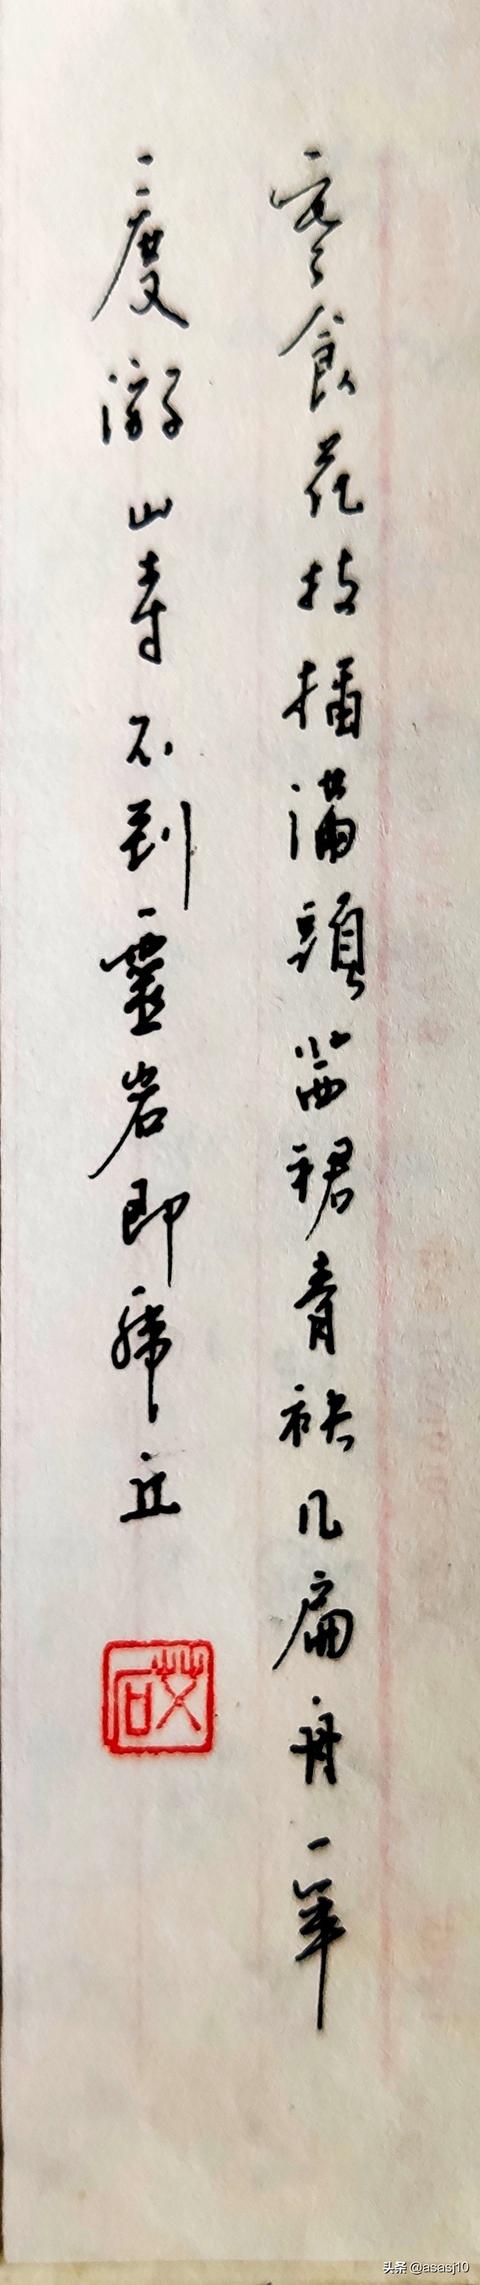 寒食花枝插滿頭茜裙青袂几扁舟一年
一度游山寺不到靈岩即虎丘
艾石
头条 @asasj10